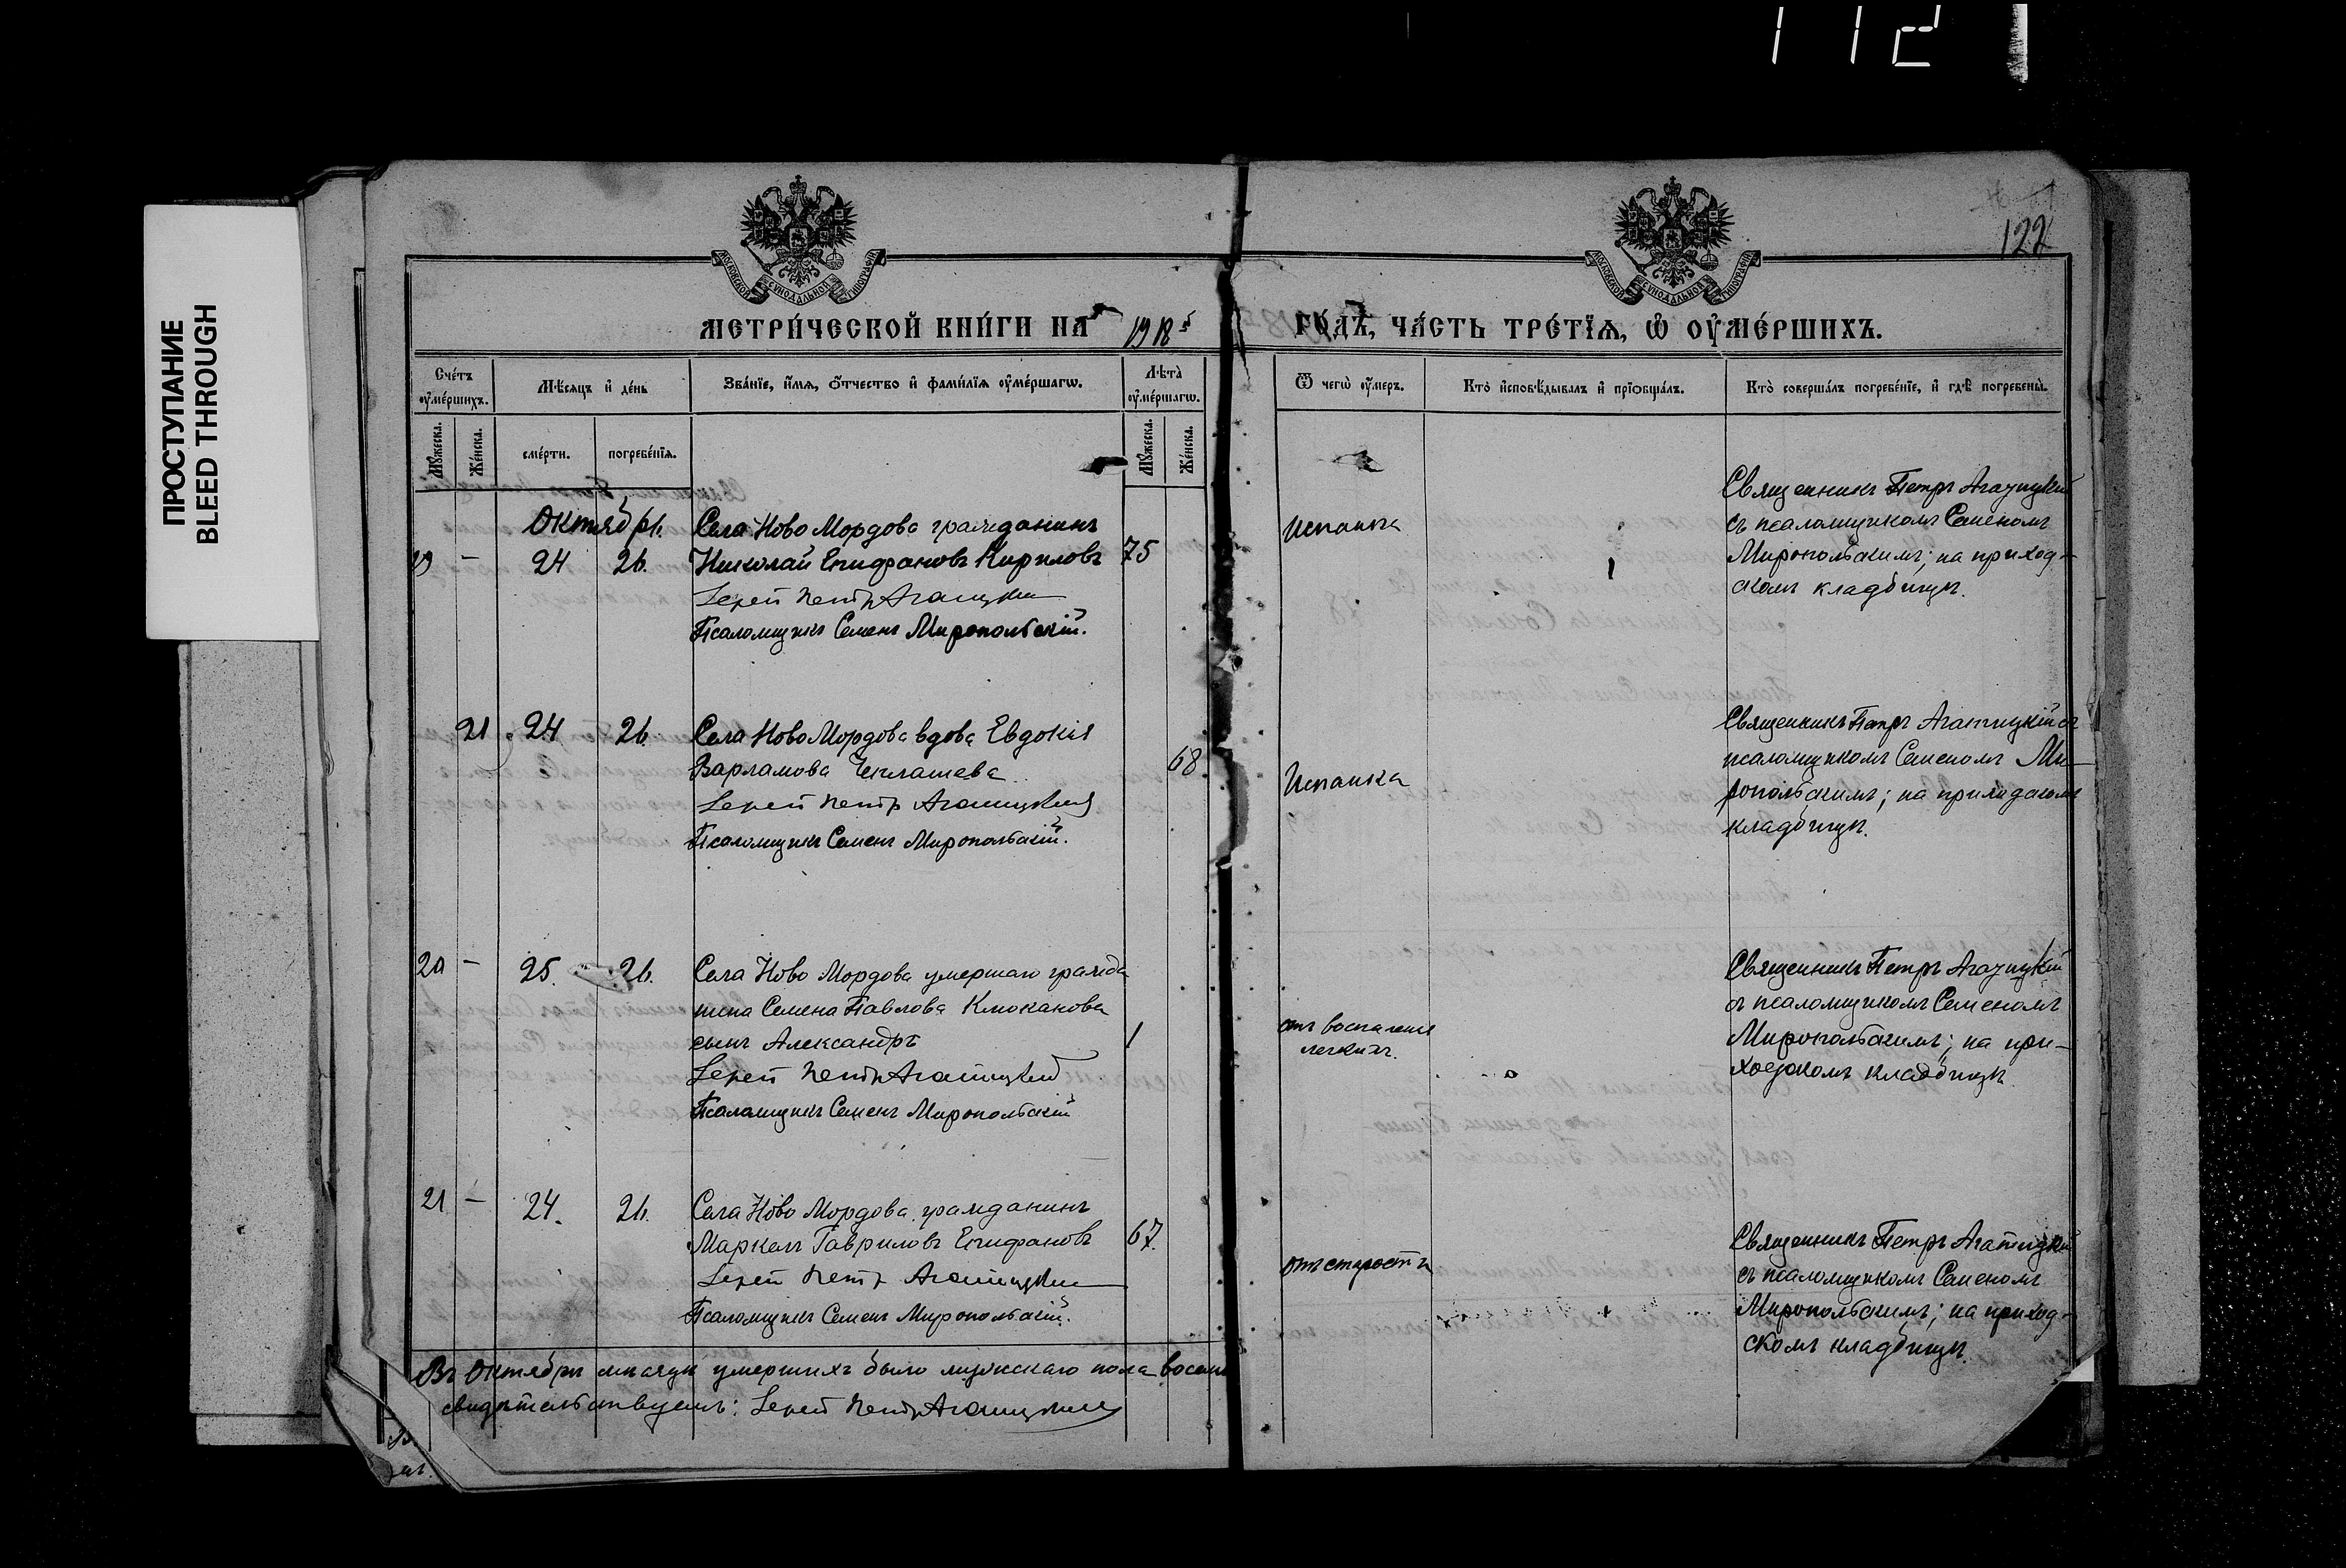 1121
ПРОСТУПАНИЕ
BLEED THROUGH
122
МОСКОВСКОЙ СѴНОДАЛЬНОЙ ТИПОГРАФІИ
МОСКОВСКОЙ СѴНОДАЛЬНОЙ ТИПОГРАФІИ
МЕТРИ́ЧЕСКОЙ КНИ́ГИ НА 1918
ГО́ДЪ, ЧА́СТЬ ТРЕ́ТІѦ, Ѡ҆ ОУ҆МЕ́РШИХЪ.
Сче́тъ оу҆ме́ршихъ.
Мѣ́сяцъ и҆ де́нь
Зва́нїе, и҆́мя, ѻ҆́тчество и҆ фами́лїя оу҆ме́ршагѡ.
Лѣ́та̀ оу҆ме́ршагѡ.
Ѿ чегѡ̀ оу҆́меръ.
Кто̀ и҆сповѣ́дывалъ и҆ прїѡбща́лъ.
Кто̀ соверша́лъ погребе́нїе, и҆ гдѣ̀ погребены̀.
Мꙋ́жеска.
Же́нска.
сме́рти.
погребе́нїя.
Мꙋ́жеска.
Же́нска.
Октябрь.
19 – 24 26. Села Ново Мордова гражданинъ
Николай Епифановъ Кириловъ 75
Іерей Петръ Агатицкій
Псаломщикъ Семенъ Миропольскій.
Испанка
Священникъ Петръ Агатицкій
съ псаломщикомъ Семеномъ
Миропольскимъ; на приход-
скомъ кладбищѣ.
21 24 26. Села Ново Мордова вдова Евдокія
Варламова 68
Іерей Петръ Агатицкій
Псаломщикъ Семенъ Миропольскій.
Испанка
Священникъ Петръ Агатицкій съ
псаломщикомъ Семеномъ Ми-
ропольскимъ; на приходскомъ
кладбищѣ.
20 – 25. 26. Села Ново Мордова умершаго гражда
нина Семена Павлова Клюканова
сынъ Александръ 1
Іерей Петръ Агатицкій
Псаломщикъ Семенъ Миропольскій
отъ воспаленія
легкихъ.
Священникъ Петръ Агатицкій
съ псаломщикомъ Семеномъ
Миропольскимъ; на при-
ходскомъ кладбищѣ.
21 – 24. 26. Села Ново Мордова гражданинъ
Маркелъ Гавриловъ Епифановъ 67.
Іерей Петръ Агатицкій
Псаломщикъ Семенъ Миропольскій.
отъ старости
Священникъ Петръ Агатицкій
съ псаломщикомъ Семеномъ
Миропольскимъ; на приход-
скомъ кладбищѣ.
Въ Октябрѣ мѣсяцѣ умершихъ было мужскаго пола восемь
свидѣтельствуемъ: Іерей Петръ Агатицкій